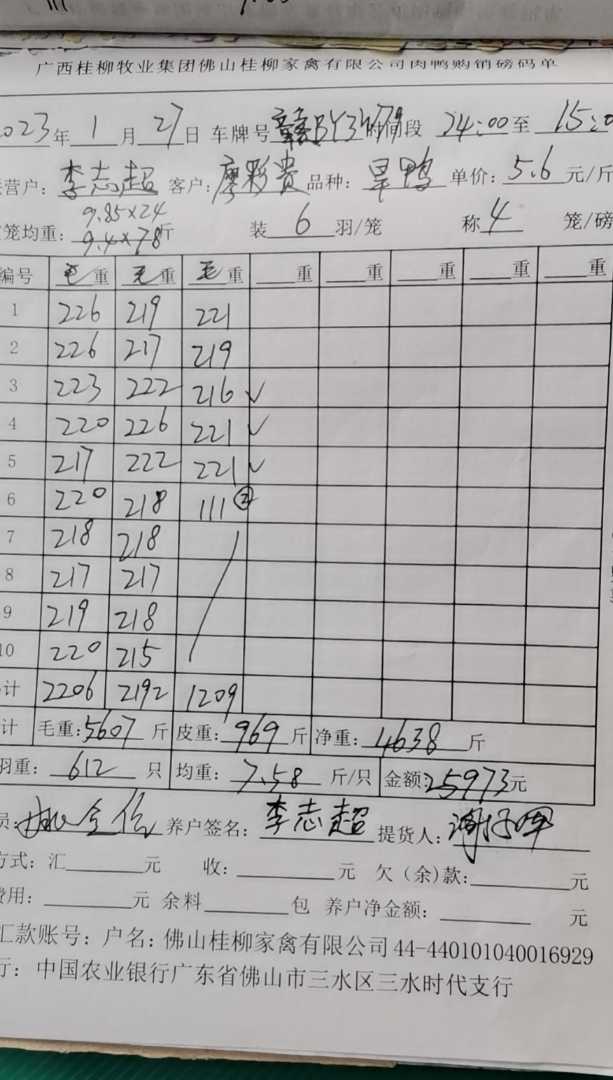 广西桂柳牧业集团佛山桂柳家禽有限公司肉鸭购销磅码单
2023年 1 月 27 日 车牌号 赣BY3 时间段 24:00 至 15:0
营户: 李志超 客户: 廖彩贵 品种: 旱鸭 单价: 5.6 元/斤
9.85×24
笼均重: 9.4×78 斤 装 6 羽/笼 称 4 笼/磅
编号 毛重 毛重 毛重 重 重 重 重 重
1 226 219 221
2 226 217 219
3 223 222 216 ✓
4 220 226 221 ✓
5 217 222 221 ✓
6 220 218 111 ②
7 218 218
8 217 217
9 219 218
10 220 215
计 2206 2192 1209
计 毛重: 5607 斤 皮重: 969 斤 净重: 4638 斤
羽重: 612 只 均重: 7.58 斤/只 金额: 25973 元
员: 养户签名: 李志超 提货人:
方式: 汇 元 收: 元 欠(余)款: 元
费用: 元 余料 包 养户净金额: 元
汇款账号: 户名: 佛山桂柳家禽有限公司 44-440101040016929
行: 中国农业银行广东省佛山市三水区三水时代支行